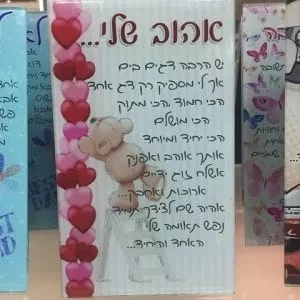 אהוב שלי...
יש הרבה דגים בים
אך לי מספיק רק דג אחד
הכי חמוד, הכי מתוק
הכי מושלם
הכי יחיד ומיוחד
אותך אוהב ואפנק
אשלח זוג ידיים
ארוכות ואחבק...
אהיה שם לצידך תמיד
נפש תאומה שלי
האחד והיחיד...